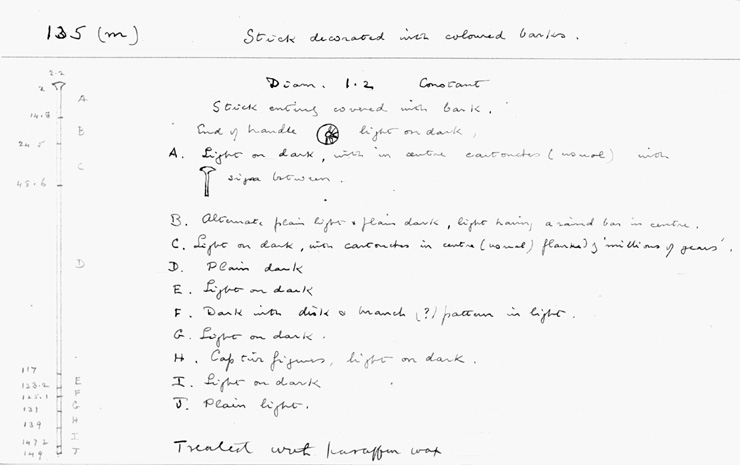 135 (m)
Stick decorated with coloured barks.
Diam. 1.2 Constant
Stick entirely covered with bark.
End of handle light on dark,
A. Light on dark, with in centre cartouches (usual) with
signs between.
B. Alternate plain light & plain dark, light having a raised bar in centre.
C. Light on dark, with cartouches in centre (usual) flanked by 'millions of years'.
D. Plain dark
E. Light on dark
F. Dark with disk & branch (?) pattern in light.
G. Light on dark.
H. Captive figures, light on dark.
I. Light on dark
J. Plain light.
Treated with paraffin wax
2.2
A
14.8
B
24.5
C
45.6
D
117
E
123.2
F
125.1
G
131
H
139
I
147.2
J
149